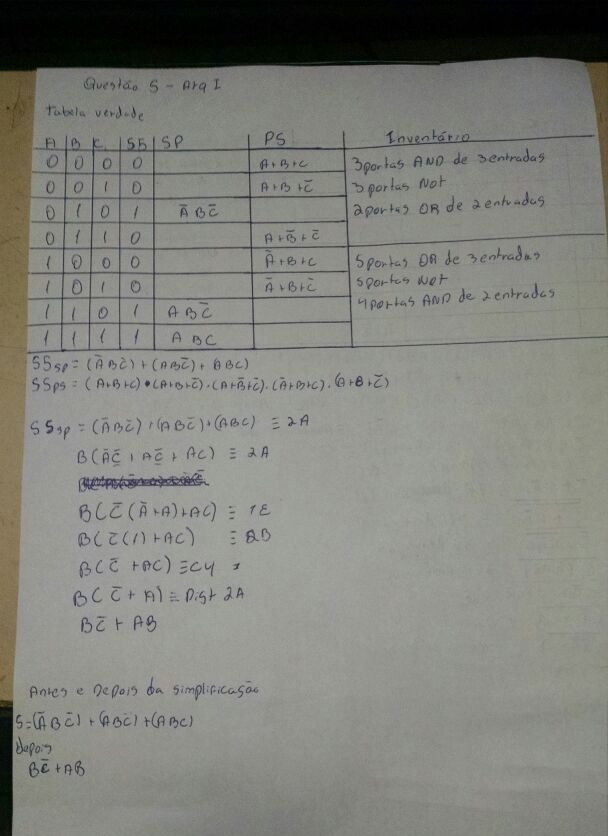 Questão 5 - Arq I
tabela verdade
A B C S5 SP PS Inventário
0 0 0 0 A+B+C 3 portas AND de 3 entradas
0 0 1 0 A+B+C̅ 3 portas Not
0 1 0 1 A̅BC̅ 2 portas OR de 2 entradas
0 1 1 0 A+B̅+C̅
1 0 0 0 A̅+B+C 5 portas OR de 3 entradas
1 0 1 0 A̅+B+C̅ 5 portas Not
1 1 0 1 ABC̅ 4 portas AND de 2 entradas
1 1 1 1 ABC
S5sp = (A̅BC̅)+(ABC̅)+(ABC)
S5ps = (A+B+C)•(A+B+C̅).(A+B̅+C̅).(A̅+B+C).(A+B+C̅)
S5sp = (A̅BC̅)+(ABC̅)+(ABC) ≡ 2A
B(A̅C̅ + AC̅ + AC) ≡ 2A
B(C̅(A̅+A)+AC) ≡ 1E
B(C̅(1)+AC) ≡ 2B
B(C̅ + AC) ≡ C4
B(C̅ + A) ≡ Dist 2A
BC̅ + AB
Antes e Depois da simplificação
S=(A̅BC̅)+(ABC̅)+(ABC)
depois
BC̅+AB